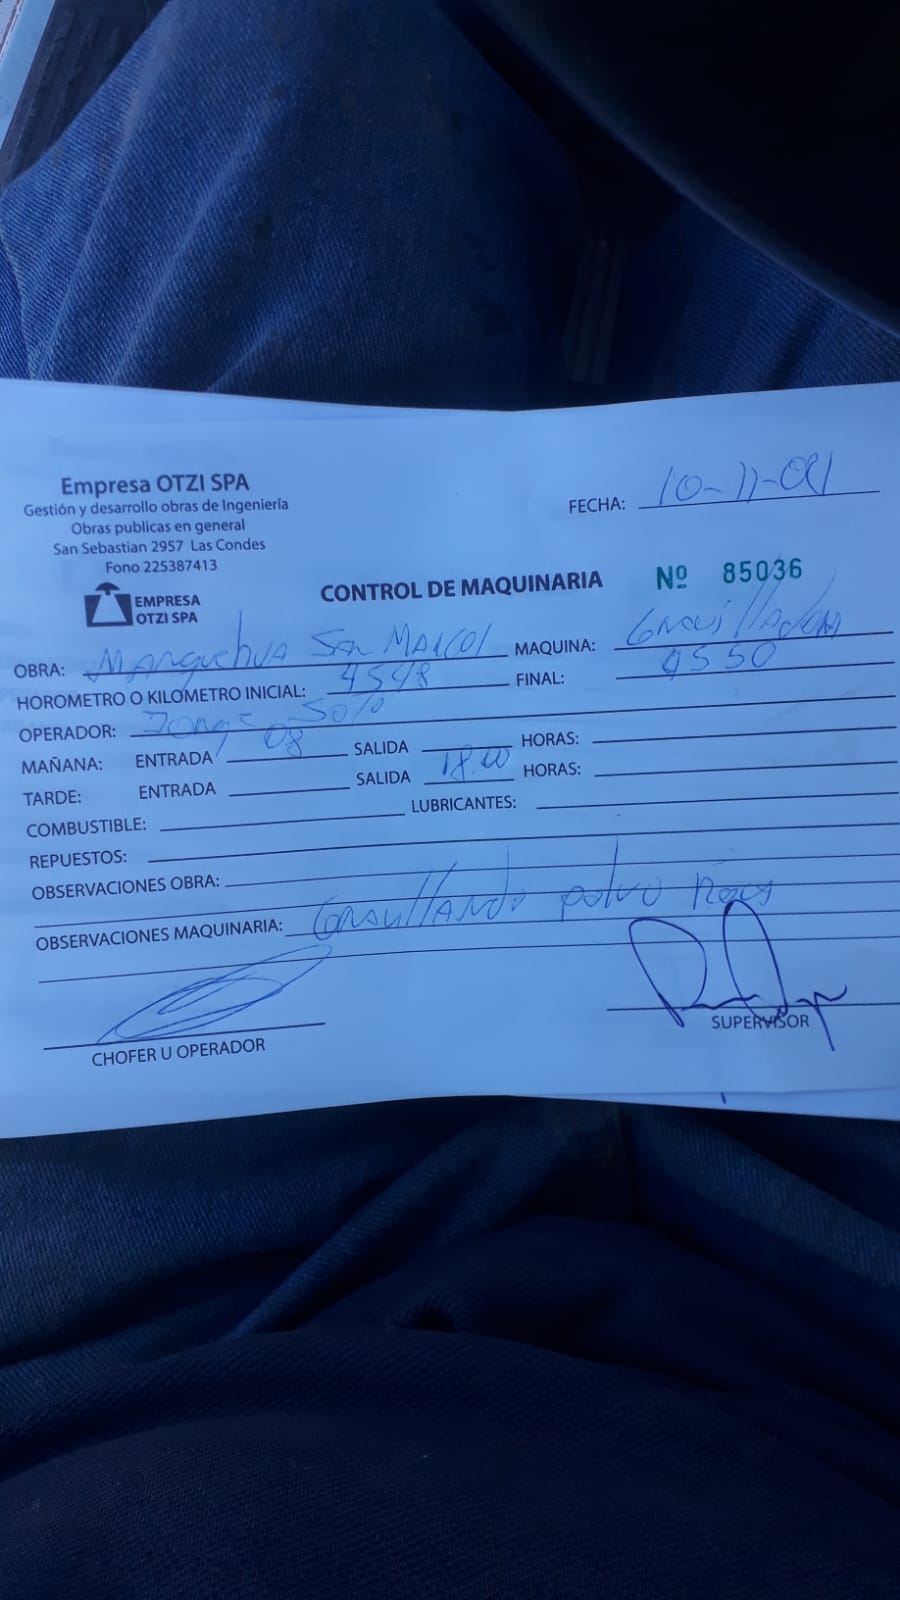 Empresa OTZI SPA
Gestión y desarrollo obras de Ingeniería
Obras publicas en general
San Sebastian 2957 Las Condes
Fono 225387413
EMPRESA
OTZI SPA
FECHA: 10-11-
CONTROL DE MAQUINARIA
Nº 85036
OBRA: Manquehua San Marcol MAQUINA: Gravilladora
HOROMETRO O KILOMETRO INICIAL: 4548 FINAL: 4550
OPERADOR: Jorge Soto
MAÑANA: ENTRADA 08 SALIDA HORAS:
TARDE: ENTRADA SALIDA 18.00 HORAS:
COMBUSTIBLE: LUBRICANTES:
REPUESTOS:
OBSERVACIONES OBRA:
OBSERVACIONES MAQUINARIA: Gravillando polvo
CHOFER U OPERADOR
SUPERVISOR